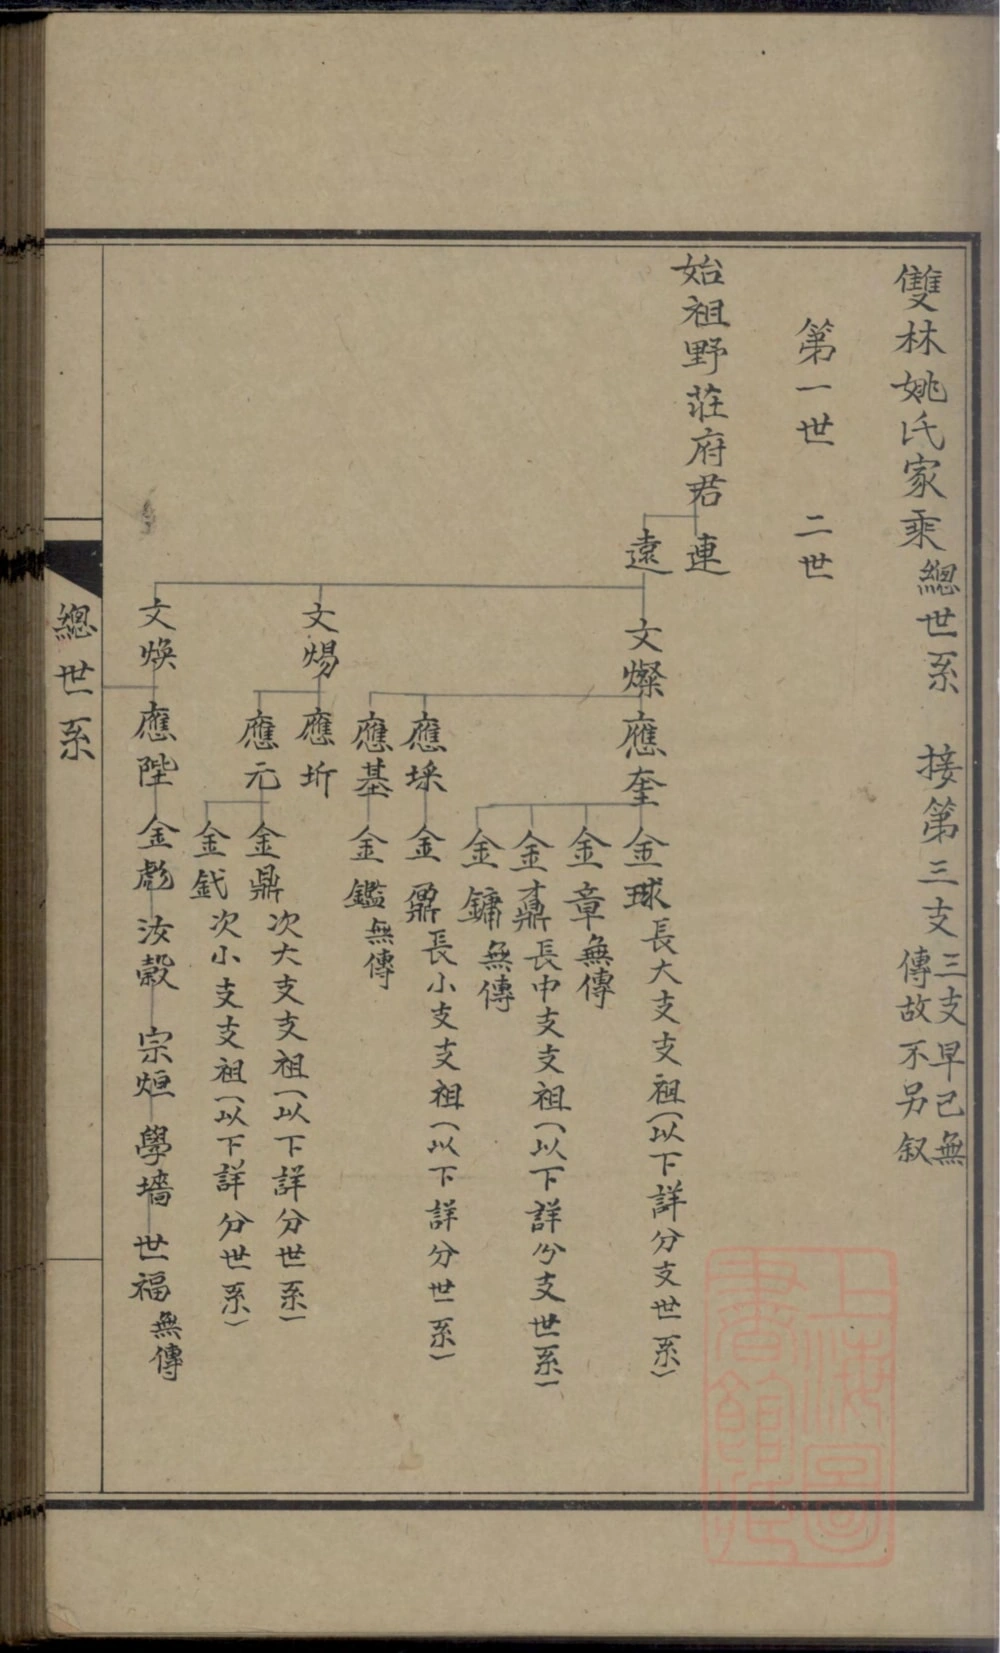 雙林姚氏家乘總世系 接第三支
三支早已無
傳故不另叙
第一世 二世
始祖野莊府君
連
遠
文燦
應奎
金球 長大支支祖(以下詳分支世系)
金章 無傳
金鼒 長中支支祖(以下詳分支世系)
金鏞 無傳
應埰
金鼐 長小支支祖(以下詳分世系)
應基
金鑑 無傳
文煬
應圻
應元
金鼎 次大支支祖(以下詳分世系)
金釴 次小支支祖(以下詳分世系)
文焕
應陛
金彪
汝縠
宗烜
學墻
世福 無傳
總世系
上海圖
書館藏